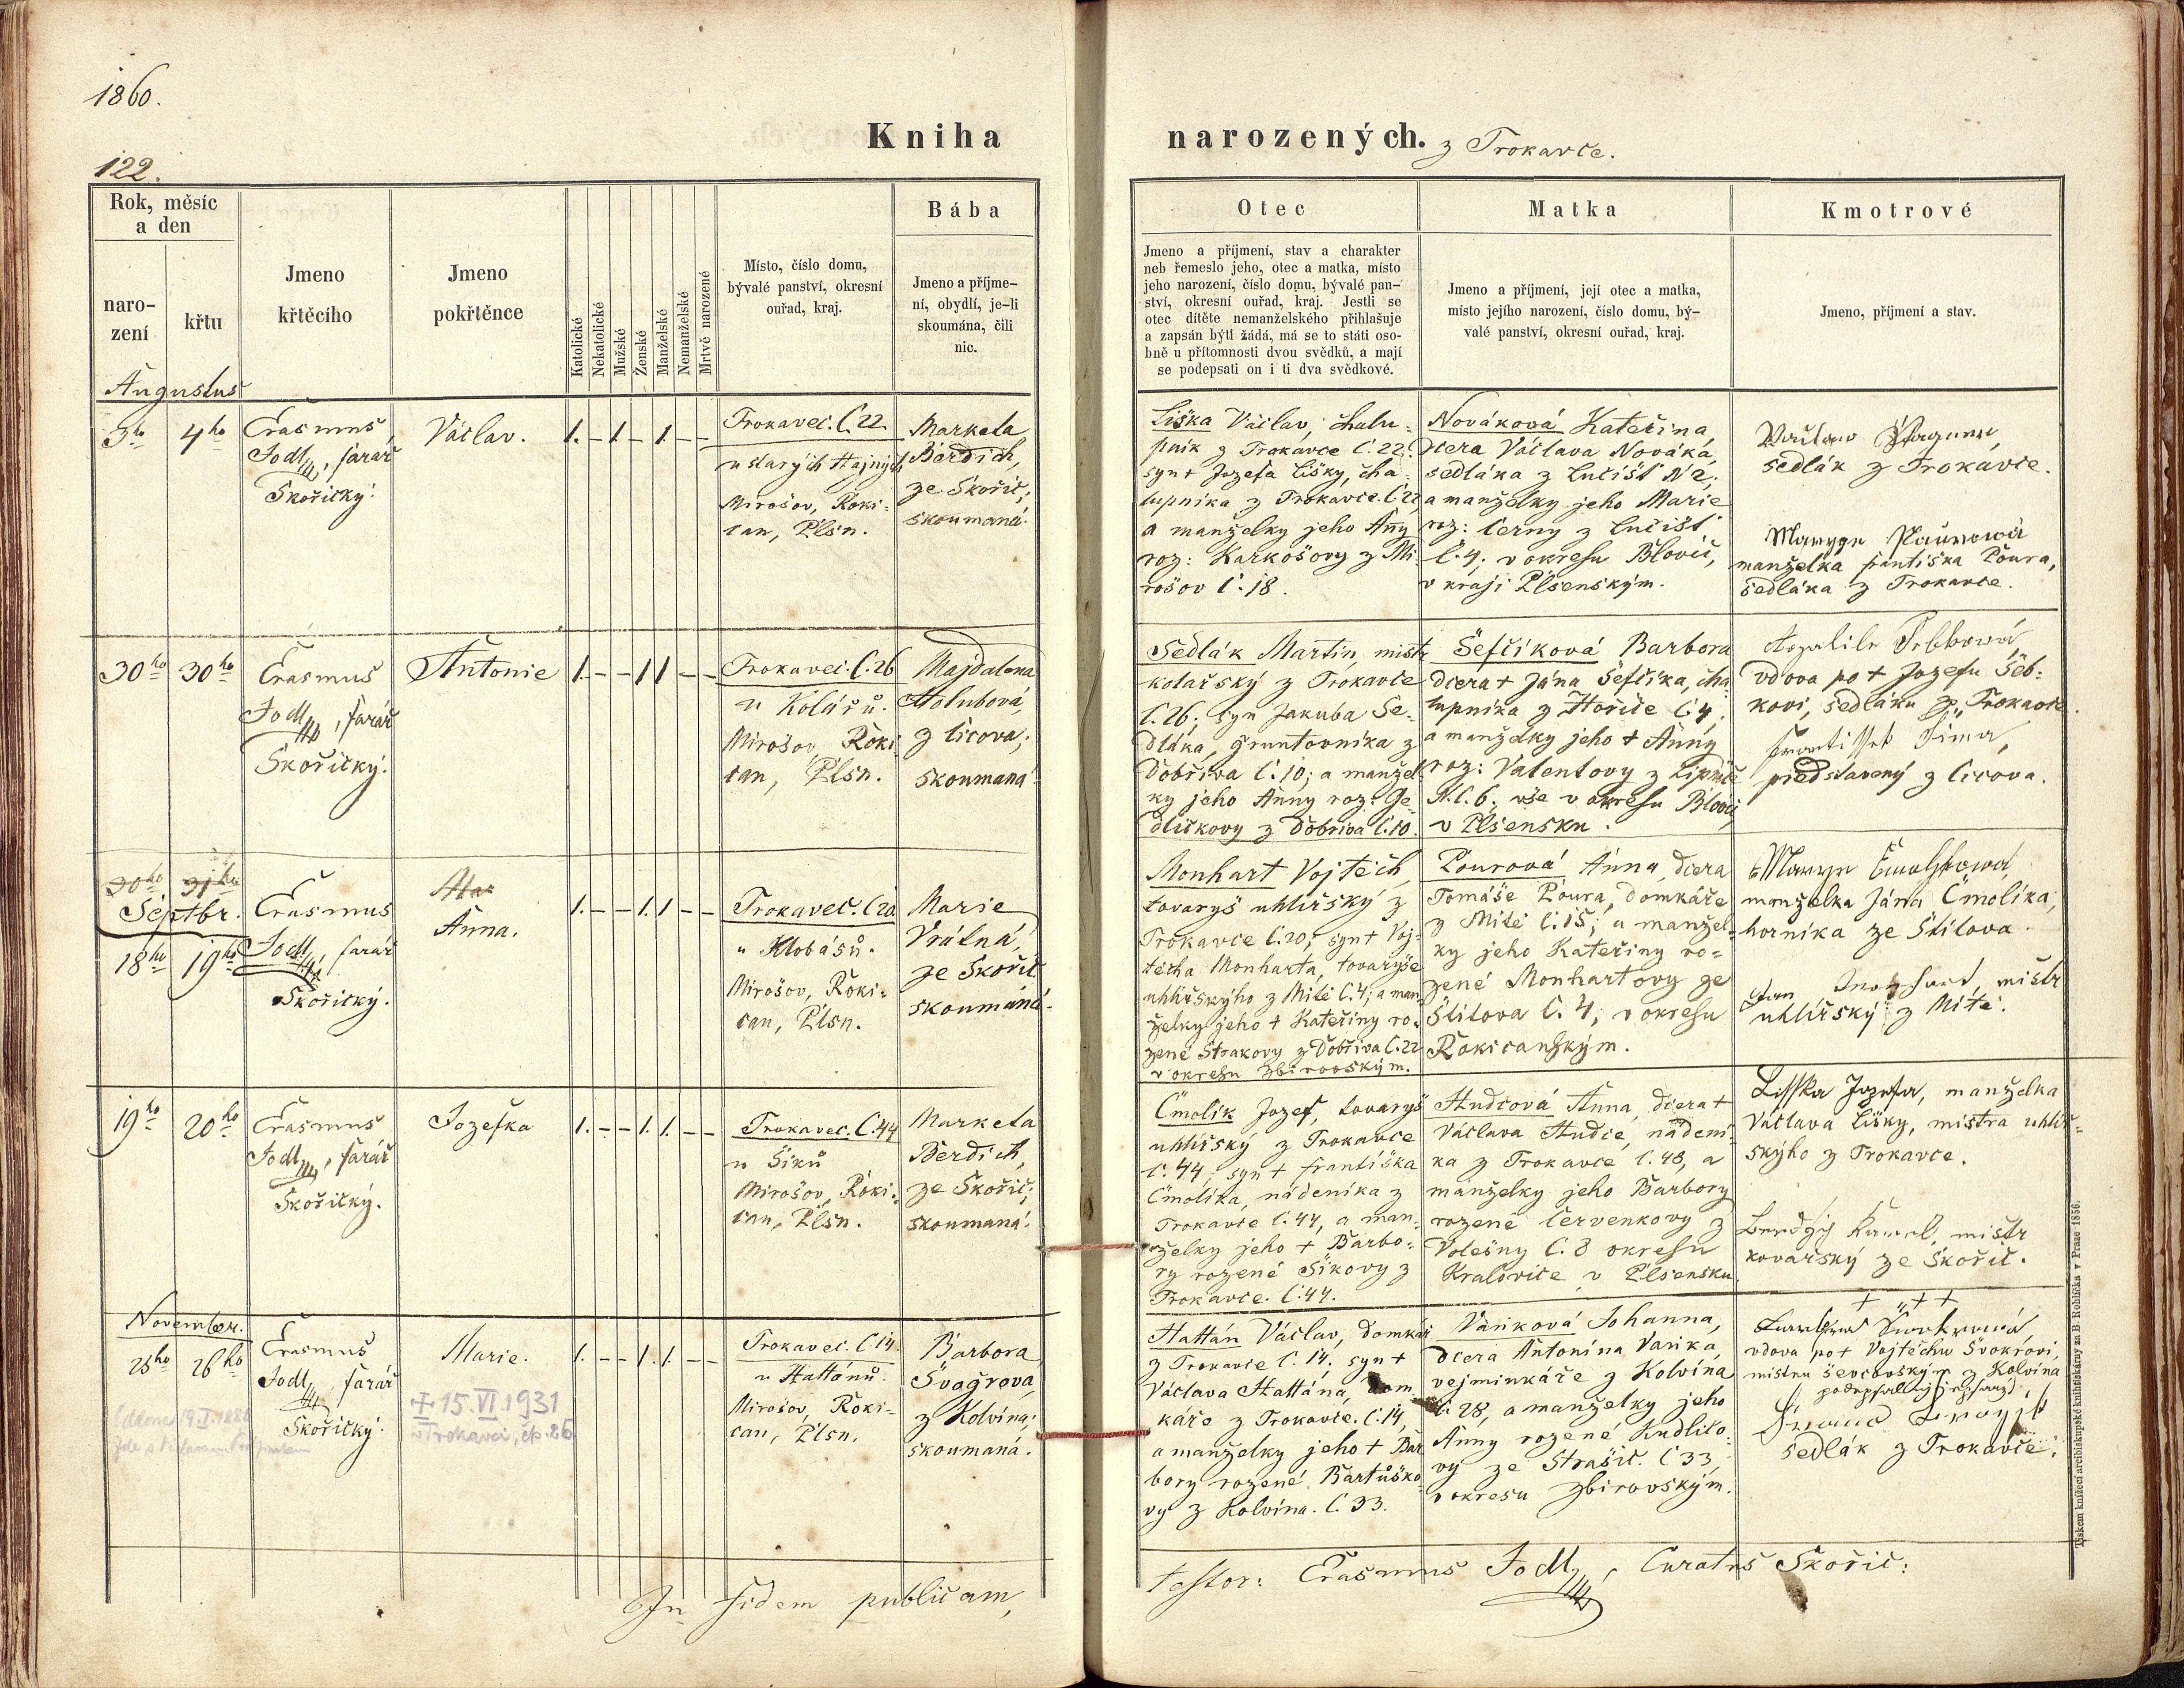 1860.
122.
Kniha
narozených. z Trokavce.
Rok, měsíc
a den
naro-
zení
křtu
Jmeno
křtěcího
Jmeno
pokřtěnce
Katolické
Nekatolické
Mužské
Ženské
Manželské
Nemanželské
Mrtvě narozené
Místo, číslo domu,
bývalé panství, okresní
ouřad, kraj.
Bába
Jmeno a příjme-
ní, obydlí, je-li
skoumána, čili
nic.
Otec
Jmeno a příjmení, stav a charakter
neb řemeslo jeho, otec a matka, místo
jeho narození, číslo domu, bývalé pan-
ství, okresní ouřad, kraj. Jestli se
otec dítěte nemanželského přihlašuje
a zapsán býti žádá, má se to státi oso-
bně u přítomnosti dvou svědků, a mají
se podepsati on i ti dva svědkové.
Matka
Jmeno a příjmení, její otec a matka,
místo jejího narození, číslo domu, bý-
valé panství, okresní ouřad, kraj.
Kmotrové
Jmeno, příjmení a stav.
Augustus
3ho
4ho
Erasmus
Jodl, farář
Skořický.
Václav.
1. – 1 – 1. – –
Trokavec. č. 22
u starých Hajných
Mirošov, Roki-
can, Plsn.
Marketa
Berdich,
ze Skořic;
skoumaná.
Liška Václav, chalu-
pník z Trokavce č. 22.
syn + Jozefa Lišky, cha-
lupníka z Trokavce č. 22,
a manželky jeho Anny
roz: Karkošovy z Mi-
rošov č. 18.
Nováková Kateřina,
dcera Václava Nováka,
sedláka z Lučišť N 2;
a manželky jeho Marie
roz: Černy z Lučišť
č. 4. v okresu Blovic,
v kraji Plsenským.
Václav Wagner,
sedlák z Trokavce.
Marya Paurowá
manželka františka Poura,
sedláka z Trokavce.
30ho
30ho
Erasmus
Jodl, farář
Skořický.
Antonie
1. – – 1 1 – –
Trokavec. č. 26
u Kolářů.
Mirošov, Roki
can, Plsn.
Majdalena
Holubová,
z Čicova;
skoumaná.
Sedlák Martin, mistr
kolařský z Trokavce
č. 26; syn Jakuba Se-
dláka, gruntovníka z
Dobřiva č. 10; a manžel-
ky jeho Anny roz: Je-
dličkovy z Dobřiva č. 10.
Šefčíková Barbora
dcera + Jána Šefčíka, cha-
lupníka z Hořice č. 4,
a manželky jeho + Anny
roz: Valentovy z Lipnice
N. č. 6. vše v okresu Blovic,
v Plsensku.
vdova po + Jozefu Šeb-
kovi, sedláku z Trokavce.
Frantissek Sima,
představený z Čicova.
30ho
31ho
Septbr.
18ho
19ho
Erasmus
Jodl, farář
Skořický.
Anna.
1. – – 1. 1 – –
Trokavec. č. 20
u Klobásů.
Mirošov, Roki-
can, Plsn.
Marie
Vrátná,
ze Skořic
skoumaná.
Monhart Vojtěch,
tovaryš uhlířský z
Trokavce č. 20; syn + Voj-
těcha Monharta, tovaryše
uhlířskýho z Mítě č. 4; a man-
želky jeho + Kateřiny ro-
zené Strakovy z Dobřiva č. 22
v okresu Zbirovským.
Pourová Anna, dcera
Tomáše Poura, domkáře
z Mítě č. 15; a manžel-
ky jeho Kateřiny ro-
zené Monhartovy ze
Štítova č. 4; v okresu
Rokicanským.
Marya Čmolíkowá,
manželka Jána Čmolíka,
horníka ze Štítova.
Jan Monhart, mistr
uhlířský z Mítě.
19ho
20ho
Erasmus
Jodl, farář
Skořický.
Jozefka
1. – – 1. 1. – –
Trokavec. č. 44
u Šiků
Mirošov, Roki-
can, Plsn.
Marketa
Berdich,
ze Skořic;
skoumaná.
Čmolík Jozef, tovaryš
uhlířský z Trokavce
č. 44; syn + františka
Čmolíka, nádeníka z
Trokavce č. 44, a man-
želky jeho + Barbo-
ry rozené Šíkovy z
Trokavce. č. 44.
Hudcová Anna, dcera +
Václava Hudce, nádení-
ka z Trokavce č. 48, a
manželky jeho Barbory
rozené Červenkovy z
Volešny č. 8 okresu
Kralovice v Plsensku
Lisska Jozefa, manželka
Václava Lišky, mistra uhlíř-
skýho z Trokavce.
Berdych Karel, mistr
kovářský ze Skořic.
November.
25ho
26ho
Erasmus
Jodl, farář
Skořický.
Marie.
+ 15. VI. 1931
v Trokavci, čp. 26
1. – – 1. 1. – –
Trokavec. č. 14.
u Hattánů.
Mirošov, Roki-
can, Plsn.
Barbora
Švagrova,
z Kolvína;
skoumaná.
Hattán Václav, domkář
z Trokavce č. 14, syn +
Václava Hattána, dom
káře z Trokavce. č. 14,
a manželky jeho + Bar
bory rozené Bartůško-
vy z Kolvína. č. 33.
Vaňková Johanna,
dcera Antonína Vaňka,
vejminkáře z Kolvína
č. 28, a manželky jeho
Anny rozené Kudlico-
vy ze Strašic. č 33,
v okresu Zbirovským.
+ + +
vdova po + Vojtěchu Švokrovi,
mistru ševcovským z Kolvína
sedlák z Trokavce.
In fidem publicam,
testor: Erasmus Jodl, Curatus Skořic:
Tiskem knížecí arcibiskupské knihtiskárny za B. Rohlíčka v Praze 1856.